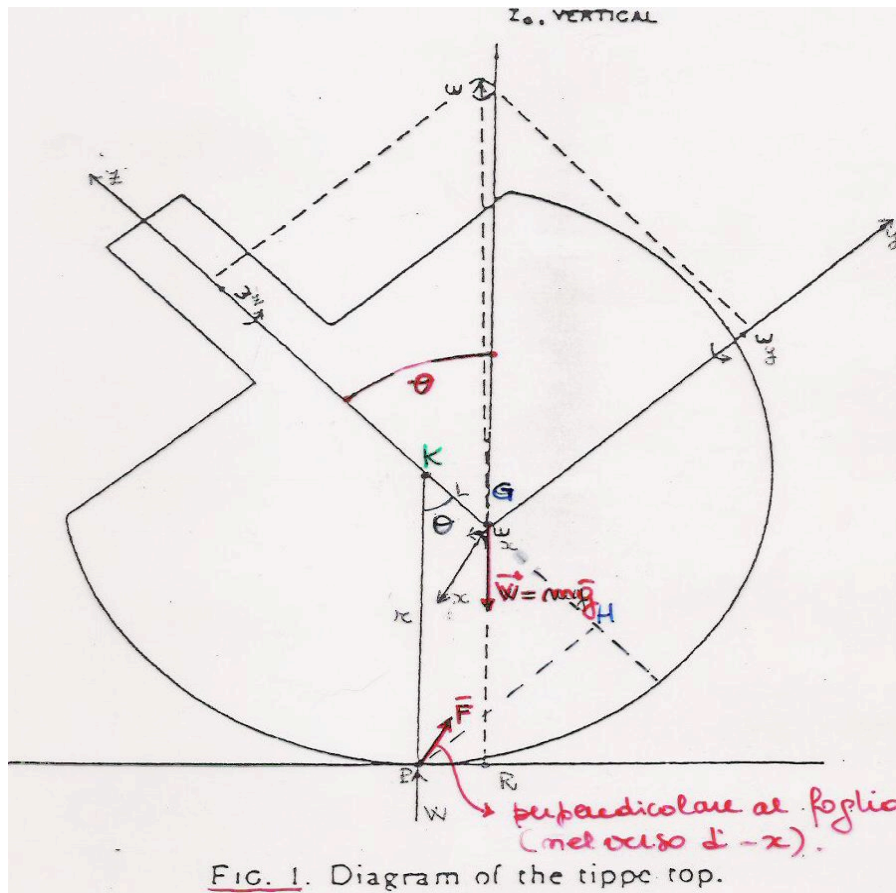 Z₀, VERTICAL
ω
Z
y
ω_z
ω_y
θ
K
L
G
θ
ω_x
x
W⃗ = mg̅
r
H
F̅
PA
R
W
perpendicolare al foglio
(nel verso di -x).
FIG. 1. Diagram of the tippe top.